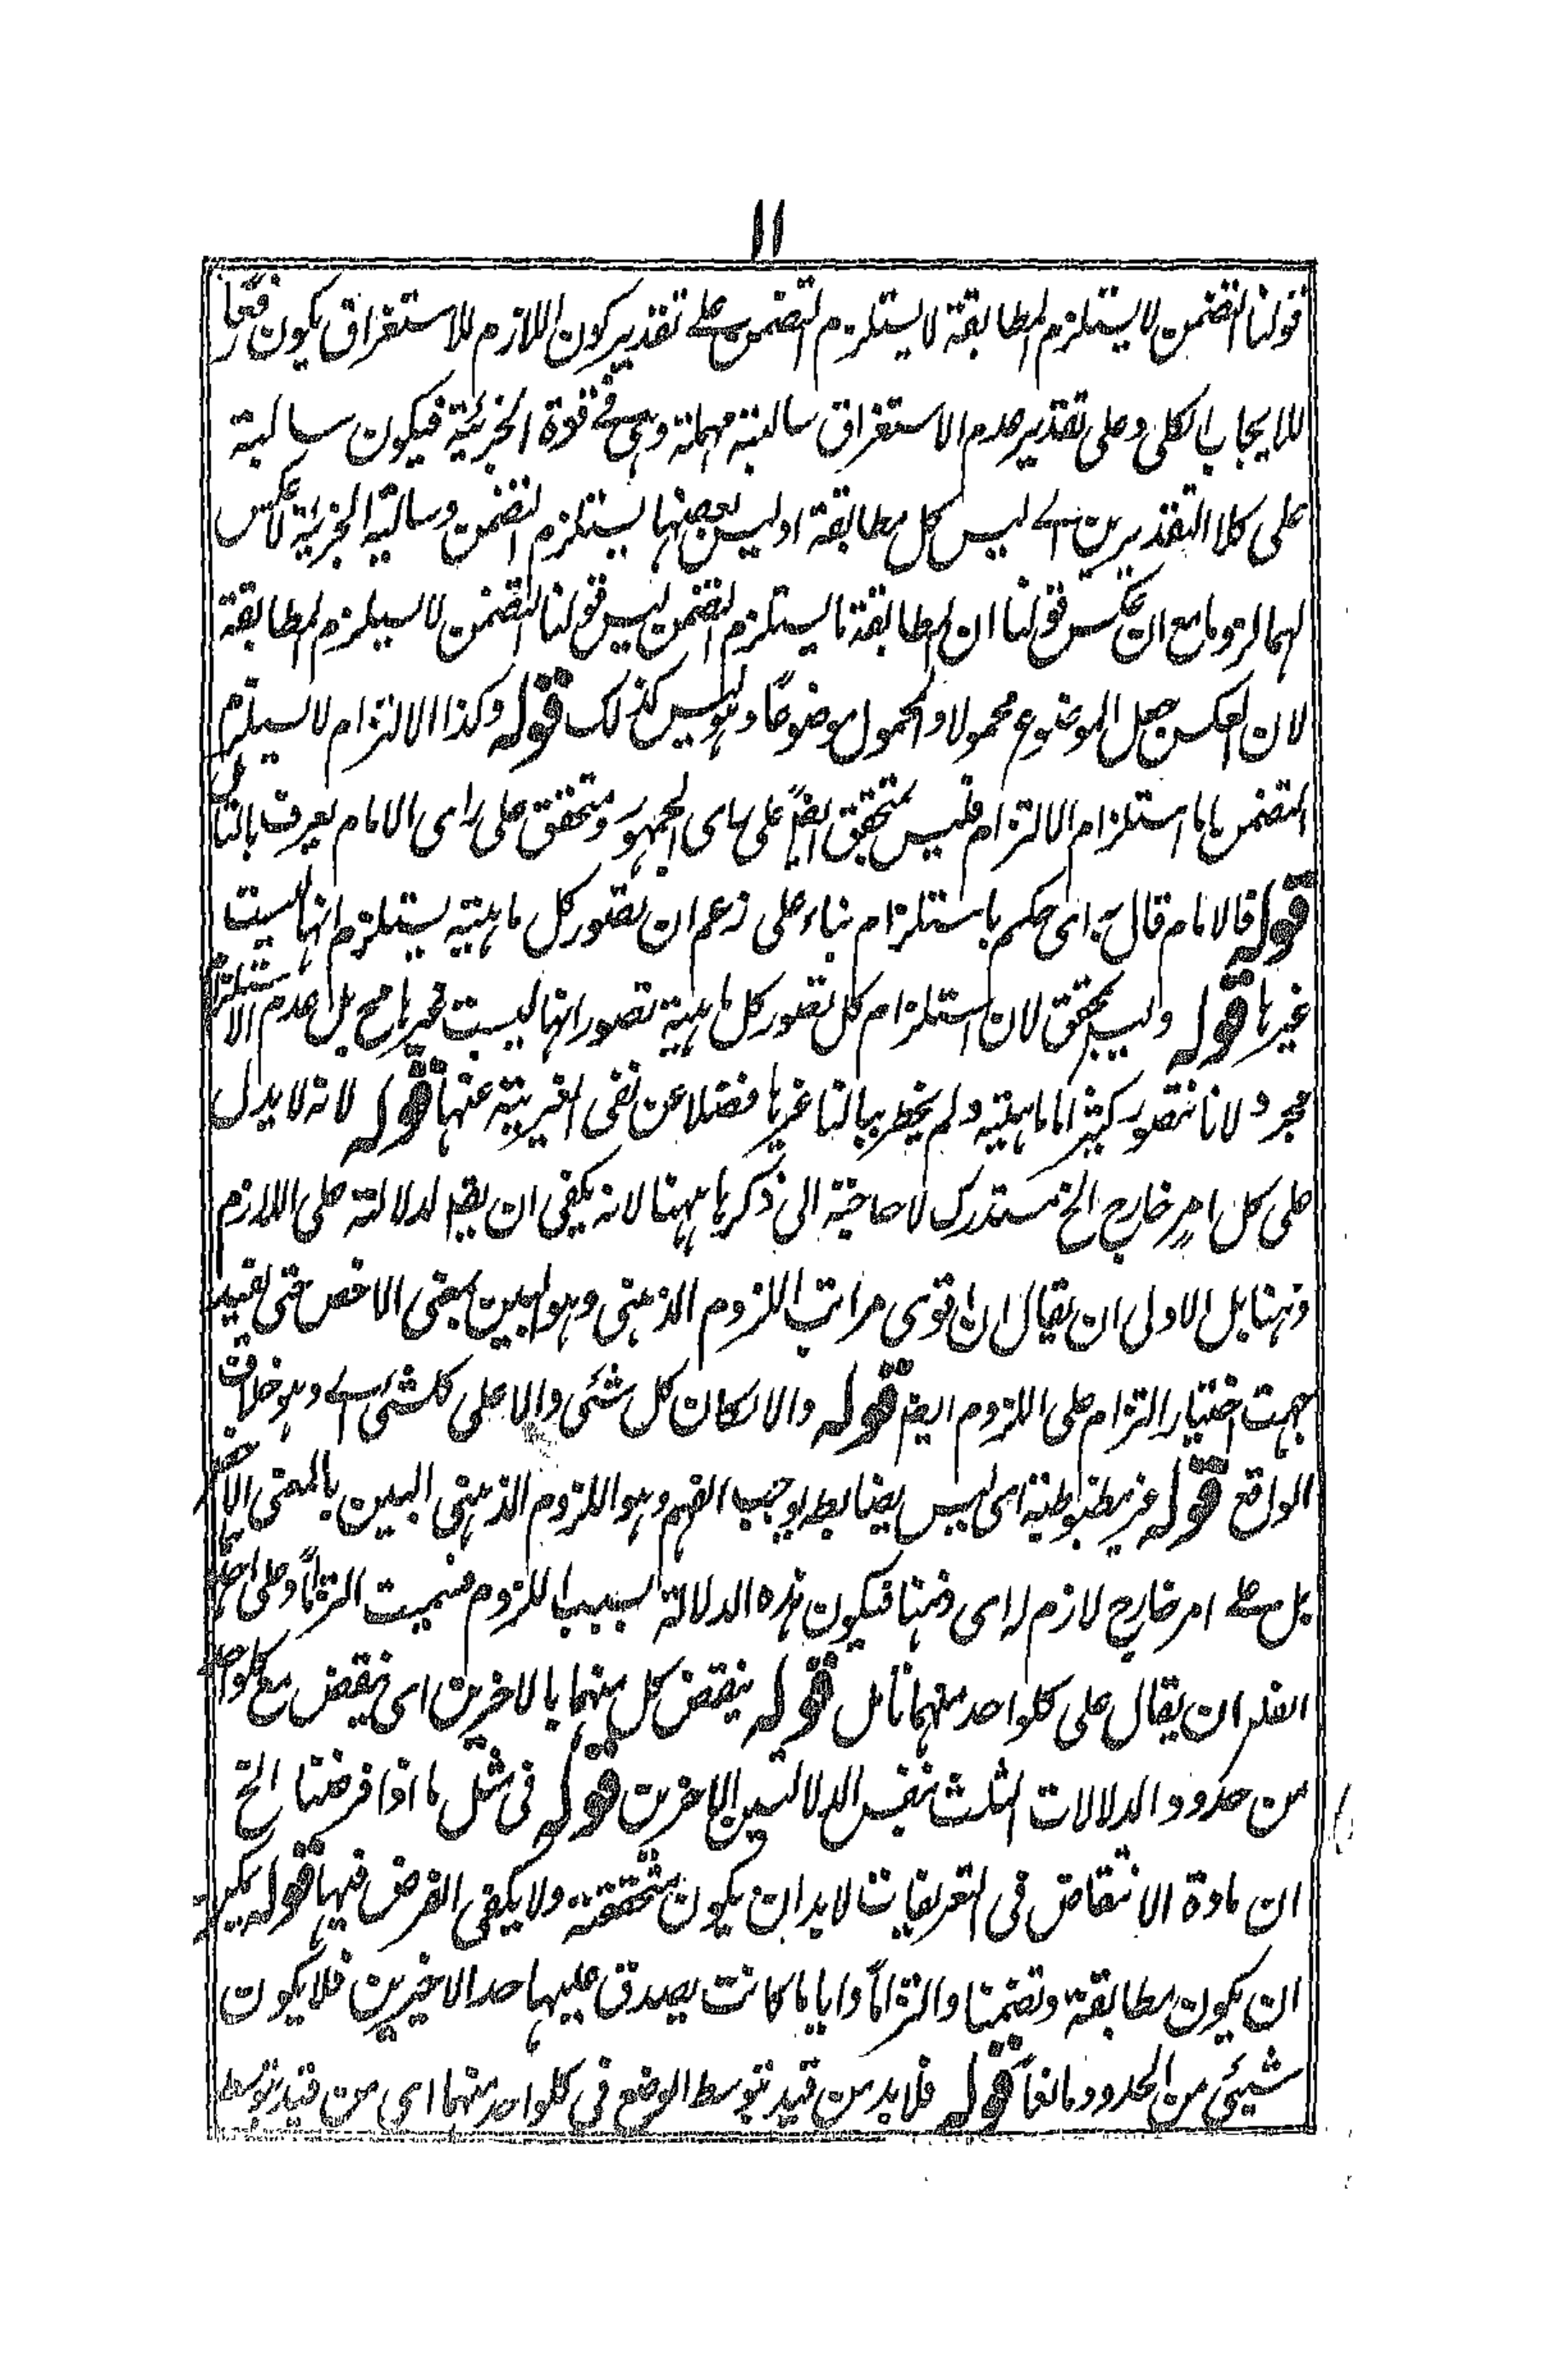 ١١
قولنا التضمن لا يستلزم المطابقة لا يستلزم التضمن على تقدير كون اللازم للاستغراق يكون رفعا
للايجاب الكلى وعلى تقدير عدم الاستغراق سالبة مهملة وهى فى قوة الجزئية فيكون سالبة
على كلا التقديرين اے ليس كل مطابقة او ليس بعضها يستلزم التضمن وسالبة الجزئية لا عكس
لهما لزوما مع ان عكس قولنا ان المطابقة لا يستلزم التضمن ليس قولنا التضمن لا يستلزم المطابقة
لان العكس جعل الموضوع محمولا والمحمول موضوعًا وهو ليس كذلك قوله وكذا الالتزام لا يستلزم
التضمن اما استلزام الالتزام فليس بمتحقق ايضًا على راى الجمهور ومتحقق على راى الامام يعرف بالتامل
قوله فالامام قال به اى حكم باستلزام بناء على زعم ان تصور كل ماهية يستلزم انها ليست
غيرها قوله وليس بمحقق لان استلزام كل تصور كل ماهية تصور انها ليست غيرها مح بل عدم الاستلزام
مجرد ولانا نتصور كثيرًا ما ماهية ولم يخطر ببالنا غيرها فضلا عن نفى الغيرية عنها قوله لانه لا يدل
على كل امرٍ خارج الخ مستدرك لا حاجة الى ذكرها ههنا لانه يكفى ان يقم لدلالته على اللازم
ذهنا بل الاولى ان يقال ان اقوى مراتب اللزوم الذهنى وهو البين بمعنى الاخص حتى يفيد
جهت اختيار التزام على اللزوم ايضم قوله والا لكان كل شئى والا على كلشئى اے وهو خلاف
الواقع قوله اى ليس بضابطه يوجب الفهم وهو اللزوم الذهنى البين بالمعنى الاخص
بل على امر خارج لازم له اى ذهنا فيكون هذه الدلالة بسبب اللزوم فسميت التزامًا وعلى
ان يقال على كلواحد منهما تامل قوله ينقض كل منهما بالاخرين اى ينقض مع كلواحد
من حدود الدلالات الثلث بنفس الدلالتين الاخرين قوله فى مثل ما اذا فرضنا الخ
ان مادة الانتقاض فى التعريفات لا بد ان يكون متحققة ولا يكفى الفرض فيها قوله يمكن
ان يكون مطابقة وتضمنا والتزامًا وايا ما كانت يصدق عليها حد الاخيرين فلا يكون
شيئى من الحدود مانعًا قوله فلا بد من قيد توسط الوضع فى كلواحد منهما اى من قيد توسط